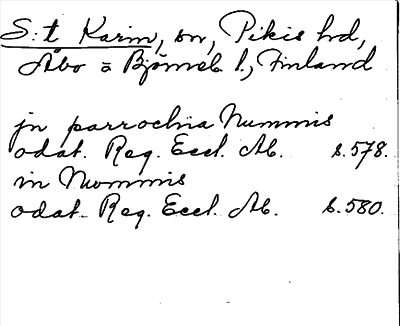 S:t Karin, sn, Pikis hd,
Åbo o Björneb l., Finland
jn parrochia Nummis
odat. Reg. Eccl. Ab. s. 578.
in Nwmmis
odat. Reg. Eccl. Ab. s. 580.